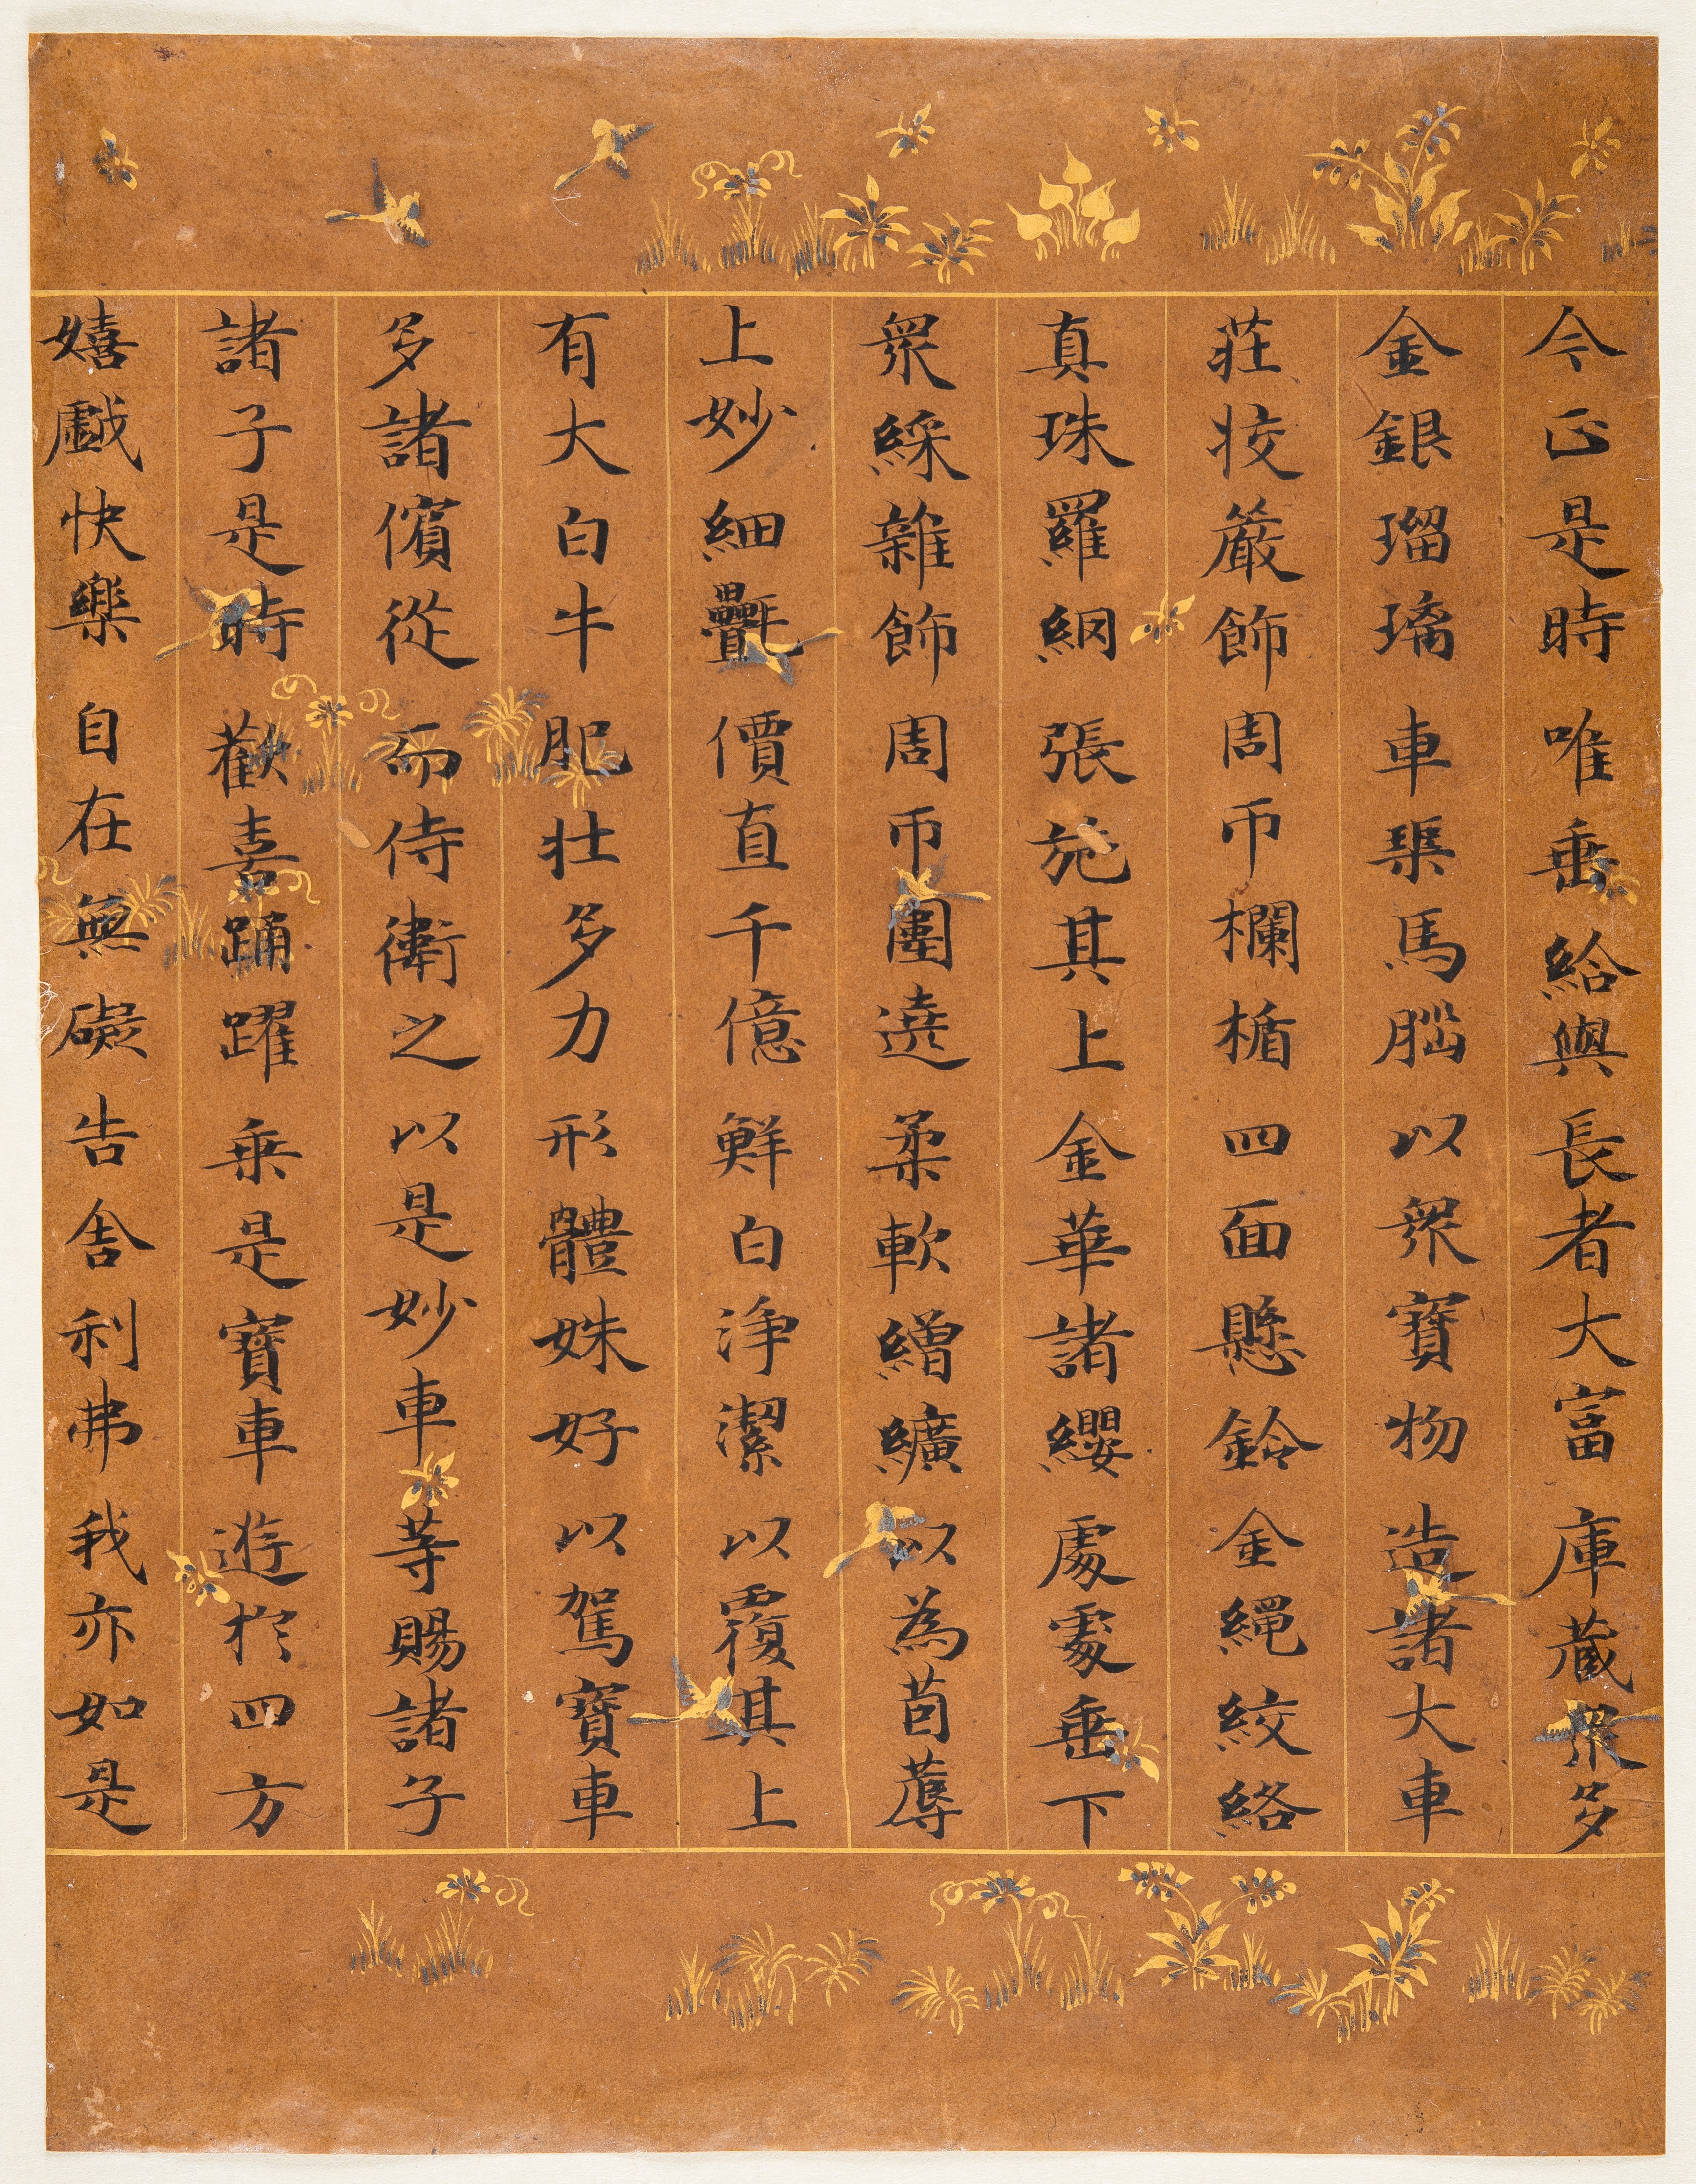 今正是時唯垂給與長者大富庫蔵衆多
金銀瑠璃車𤦲馬腦以衆寶物造諸大車
莊挍嚴飾周帀欄楯四面懸鈴金繩絞絡
真珠羅網張施其上金華諸纓處處垂下
衆綵雜飾周帀圍遶柔軟繒纊以為茵蓐
上妙細㲲價直千億鮮白淨潔以覆其上
有大白牛肥壯多力形體姝好以駕寶車
多諸儐從而侍衛之以是妙車等賜諸子
諸子是時歡喜踊躍乗是寶車遊於四方
嬉戲快樂自在無礙告舍利弗我亦如是